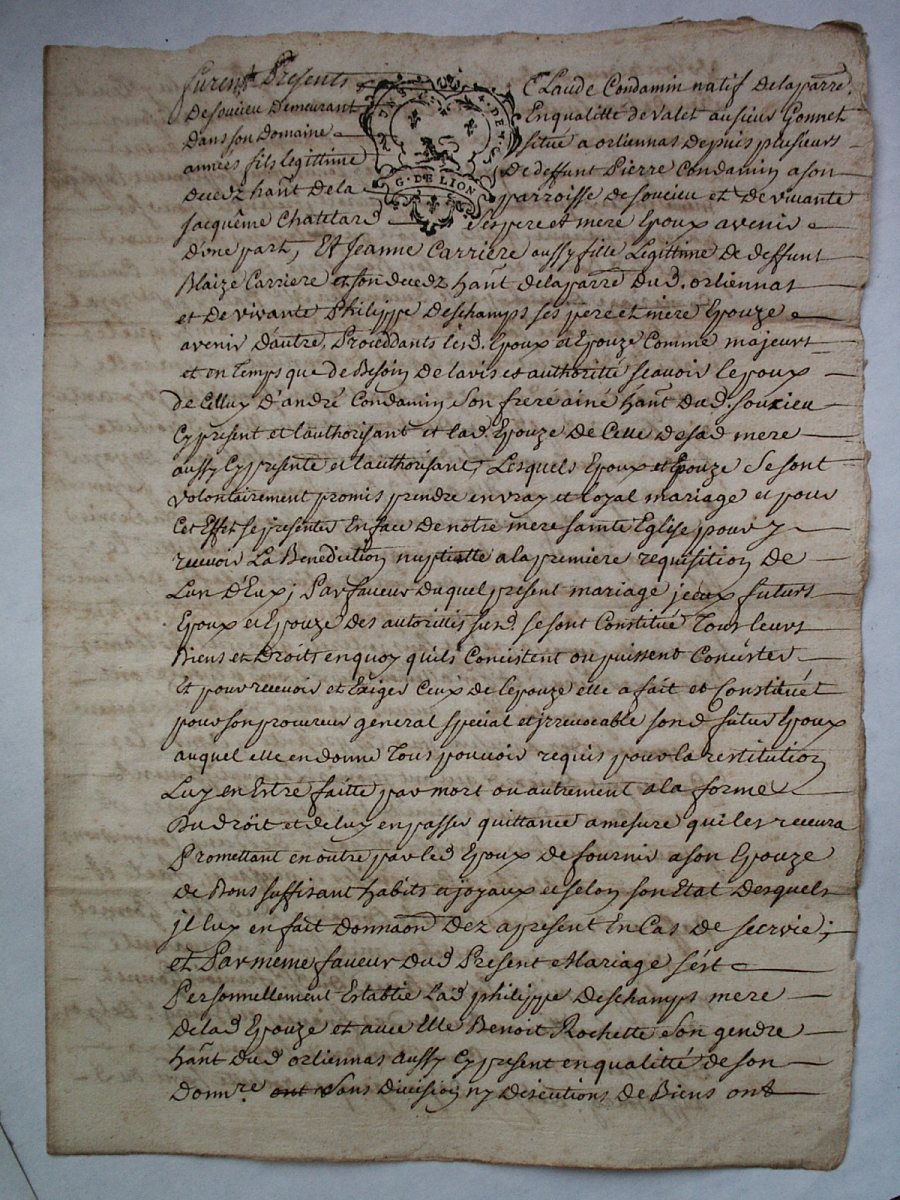 furent Presents Claude Condamin natif de la parre.
de soucieu demeurant En qualitté de valet au sieur Gonnet
dans son domaine situé a orliennas depuis plusieurs
années fils legittime de deffunt Pierre Condamin a son
decedz hant de la parroisse de soucieu et de vivante
Jacquême Chatelard ses pere et mere Epoux avenir
G · DE LION
d'une part, Et Jeanne Carriere aussy fille Legittime de deffunt
Blaize Carriere et son decedz hant. de la parre. du d. orliennas
et de vivante Philippe deschamps ses pere et mere Epouze
avenir d'autre, Proceddants lesd. Epoux et Epouze Comme majeurs
et en temps que de Besoin de lavis et authoritté scavoir lepoux
de Celluy d'andré Condamin son frere ainé hant. du d. soucieu
Cy present et l'authorisant et lad. Epouze de Celle de sad mere
aussy Cy presente et l'authorisant, Lesquels Epoux et Epouze se sont
volontairement promis prendre en vray et loyal mariage et pour
Cet Effet se presenter En face de notre mere sainte Eglise pour y
recevoir La Benediction nuptialle a la premiere requisition de
Lun d'Eux; Par faveur duquel present mariage jceux futurs
Epoux et Epouze des autorittés susd. se sont Constitué Tous leurs
Biens et Droits en quoy quils Concistent ou puissent Concister
Et pour recevoir et Exiger Ceux de lepouze elle a fait et Constitué
pour son procureur general special et jrrevocable sond futur Epoux
auquel elle en donne Tous pouvoir requis pour la restitution
Luy en Estre faitte par mort ou autrement a la forme
du droit et de luy en passer quittance a mesure quil les recevra
Promettant en outre par led Epoux de fournir a son Epouze
de Bons suffisant habits et joyaux et selon son Etat desquels
jl luy en fait donnaon dez apresent En Cas de survie;
et Par meme faveur dud Present Mariage s'est
Personnellement Establie Lad philippe deschamps mere
de lad Epouze et avec Elle Benoit Rochette son gendre
hant dud orliennas aussy Cy present en qualitté de son
donnre. ont sans division ny discutions de Biens ont